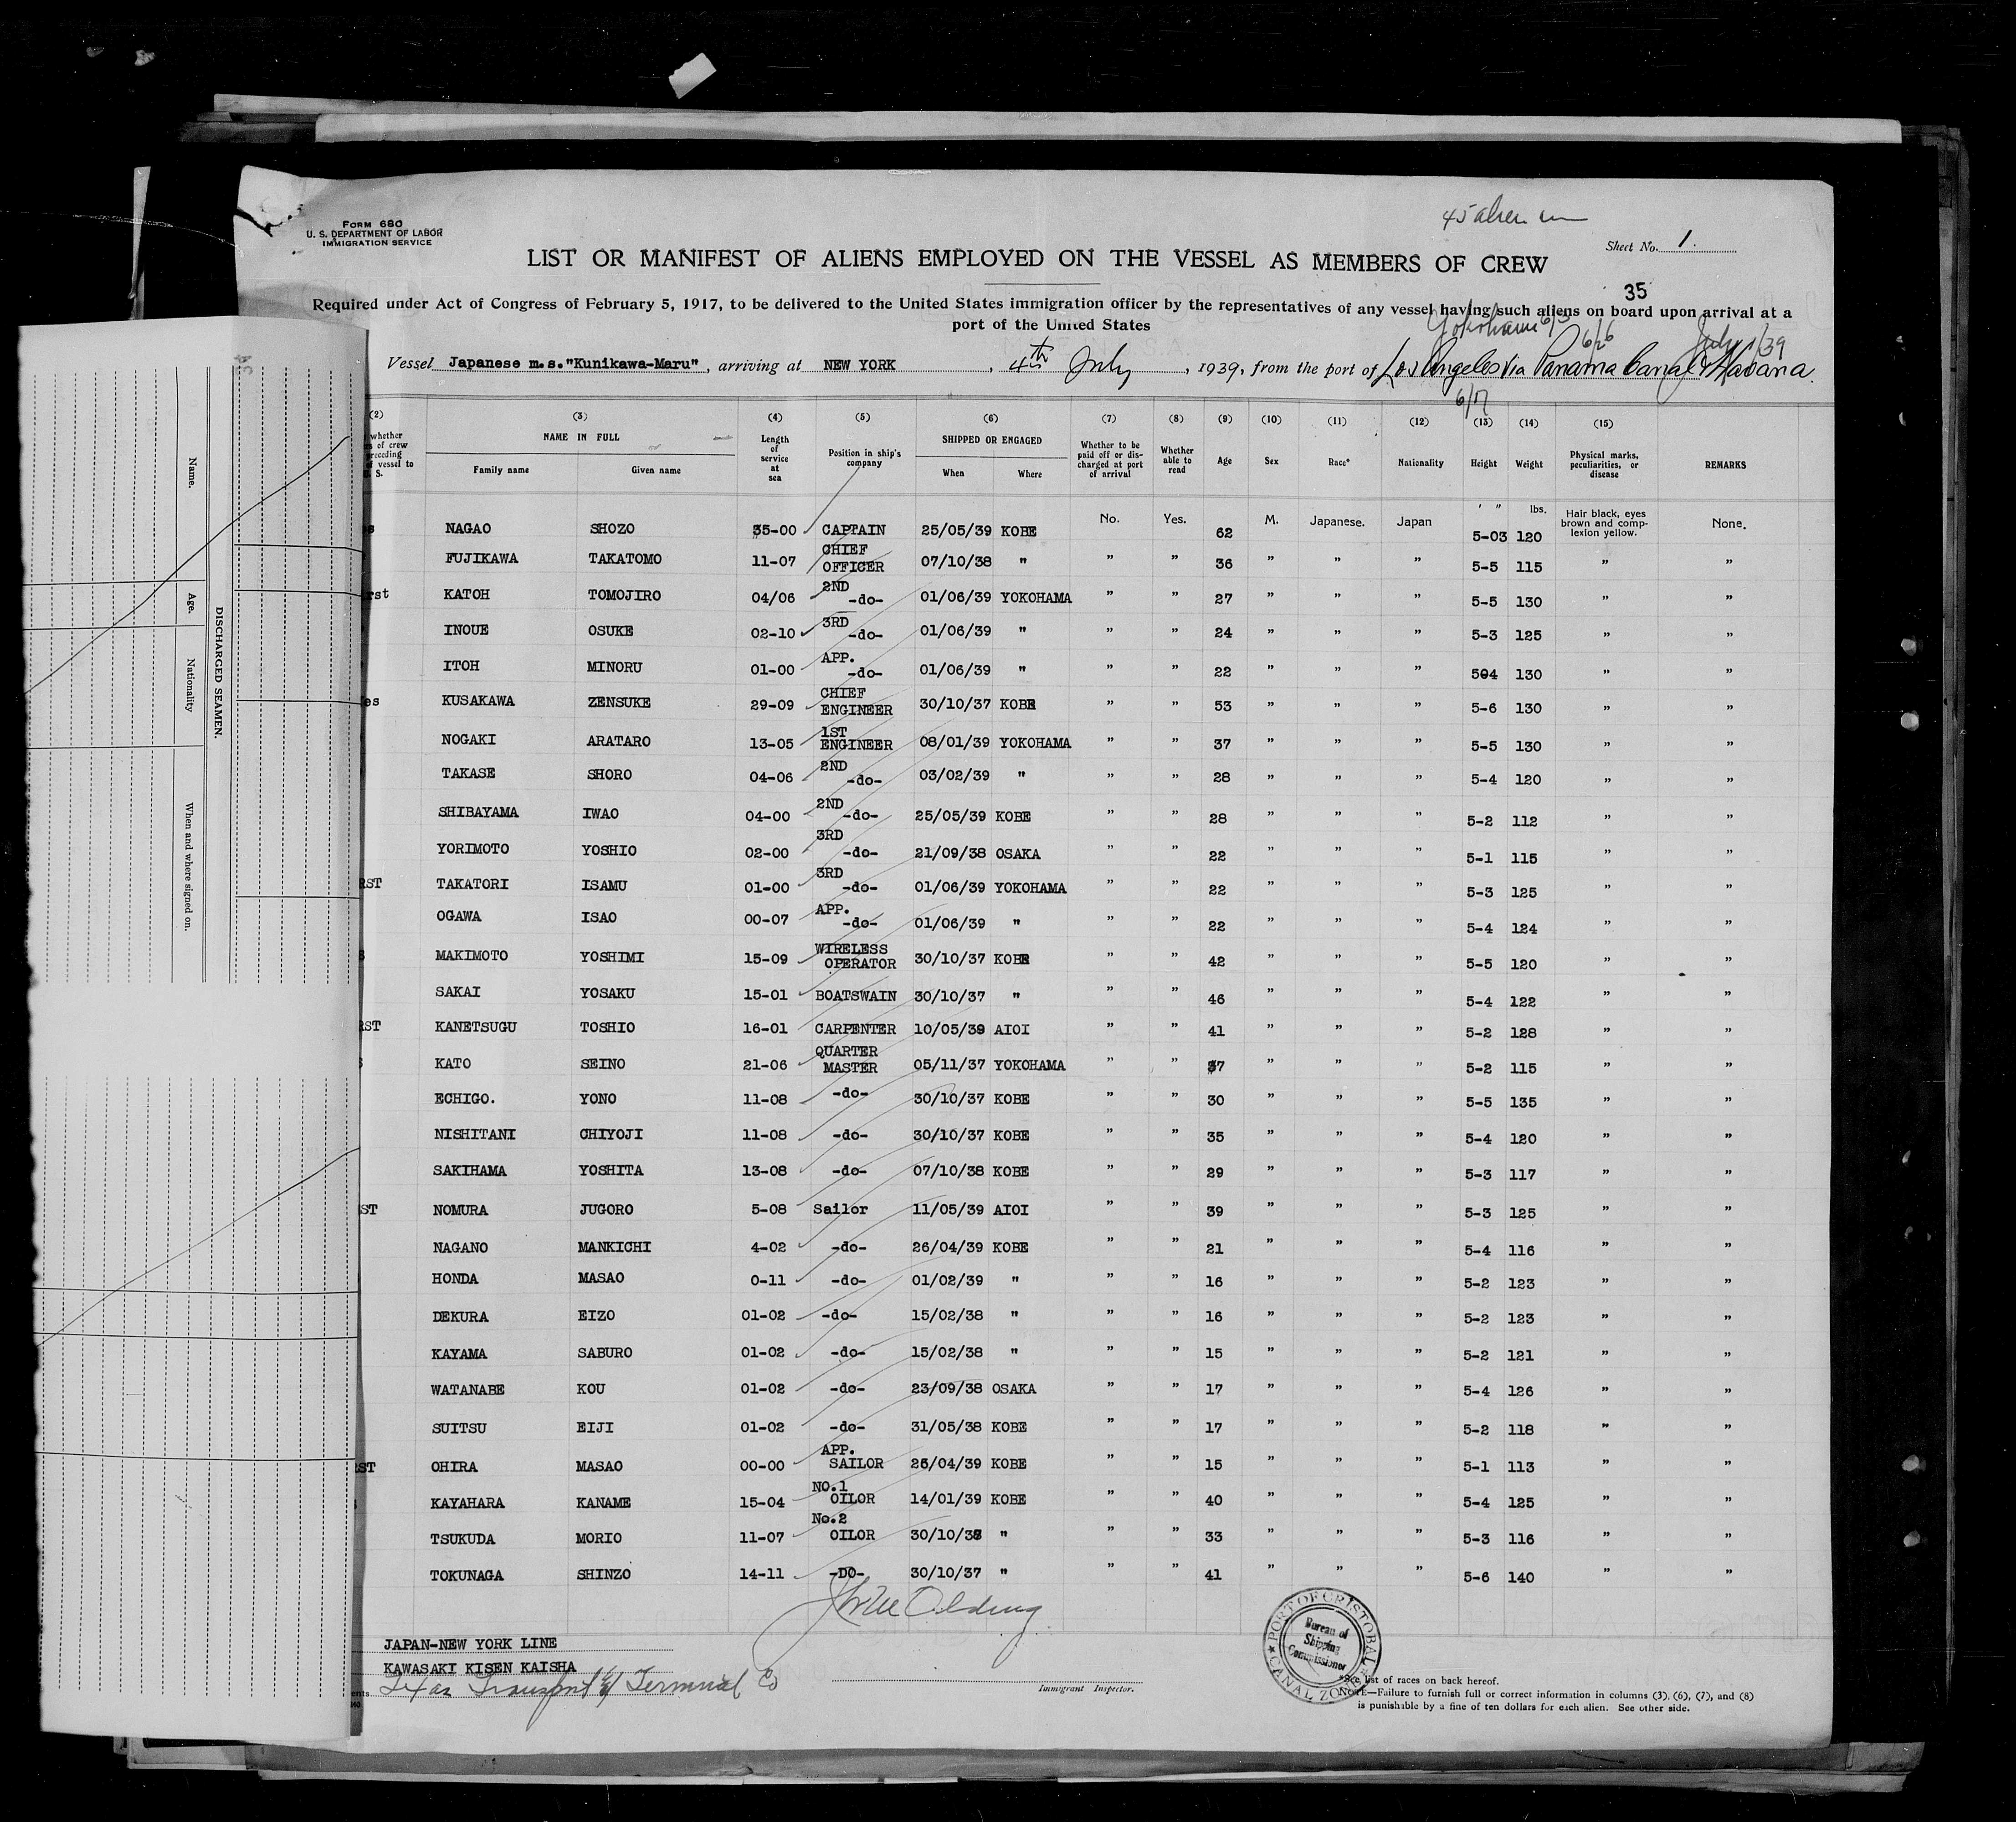 45 alien
FORM 680
U. S. DEPARTMENT OF LABOR
IMMIGRATION SERVICE
Sheet No. 1.
LIST OR MANIFEST OF ALIENS EMPLOYED ON THE VESSEL AS MEMBERS OF CREW
35
Required under Act of Congress of February 5, 1917, to be delivered to the United States immigration officer by the representatives of any vessel having such aliens on board upon arrival at a
port of the United States
Yokohama 6/3
6/26
July 1/39
Vessel Japanese m.s."Kunikawa-Maru", arriving at NEW YORK, 4th July, 1939, from the port of Los Angeles via Panama Canal & Havana.
6/17
(2) (3) (4) (5) (6) (7) (8) (9) (10) (11) (12) (13) (14) (15)
whether
of crew
preceding
vessel to
U. S.
NAME IN FULL
Family name Given name
Length
of
service
at
sea
Position in ship's
company
SHIPPED OR ENGAGED
When Where
Whether to be
paid off or dis-
charged at port
of arrival
Whether
able to
read
Age Sex Race* Nationality Height Weight
Physical marks,
peculiarities, or
disease
REMARKS
NAGAO SHOZO 35-00 CAPTAIN 25/05/39 KOBE No. Yes. 62 M. Japanese. Japan ' " 5-03 lbs. 120 Hair black, eyes brown and comp-lexion yellow. None.
FUJIKAWA TAKATOMO 11-07 CHIEF OFFICER 07/10/38 " " " 36 " " " 5-5 115 " "
rst KATOH TOMOJIRO 04/06 2ND -do- 01/06/39 YOKOHAMA " " 27 " " " 5-5 130 " "
INOUE OSUKE 02-10 3RD -do- 01/06/39 " " " 24 " " " 5-3 125 " "
ITOH MINORU 01-00 APP. -do- 01/06/39 " " " 22 " " " 504 130 " "
es KUSAKAWA ZENSUKE 29-09 CHIEF ENGINEER 30/10/37 KOBE " " 53 " " " 5-6 130 " "
NOGAKI ARATARO 13-05 1ST ENGINEER 08/01/39 YOKOHAMA " " 37 " " " 5-5 130 " "
TAKASE SHORO 04-06 2ND -do- 03/02/39 " " " 28 " " " 5-4 120 " "
SHIBAYAMA IWAO 04-00 2ND -do- 25/05/39 KOBE " " 28 " " " 5-2 112 " "
YORIMOTO YOSHIO 02-00 3RD -do- 21/09/38 OSAKA " " 22 " " " 5-1 115 " "
RST TAKATORI ISAMU 01-00 3RD -do- 01/06/39 YOKOHAMA " " 22 " " " 5-3 125 " "
OGAWA ISAO 00-07 APP. -do- 01/06/39 " " " 22 " " " 5-4 124 " "
S MAKIMOTO YOSHIMI 15-09 WIRELESS OPERATOR 30/10/37 KOBE " " 42 " " " 5-5 120 " "
SAKAI YOSAKU 15-01 BOATSWAIN 30/10/37 " " " 46 " " " 5-4 122 " "
RST KANETSUGU TOSHIO 16-01 CARPENTER 10/05/39 AIOI " " 41 " " " 5-2 128 " "
S KATO SEINO 21-06 QUARTER MASTER 05/11/37 YOKOHAMA " " 37 " " " 5-2 115 " "
ECHIGO. YONO 11-08 -do- 30/10/37 KOBE " " 30 " " " 5-5 135 " "
NISHITANI CHIYOJI 11-08 -do- 30/10/37 KOBE " " 35 " " " 5-4 120 " "
SAKIHAMA YOSHITA 13-08 -do- 07/10/38 KOBE " " 29 " " " 5-3 117 " "
ST NOMURA JUGORO 5-08 Sailor 11/05/39 AIOI " " 39 " " " 5-3 125 " "
NAGANO MANKICHI 4-02 -do- 26/04/39 KOBE " " 21 " " " 5-4 116 " "
HONDA MASAO 0-11 -do- 01/02/39 " " " 16 " " " 5-2 123 " "
DEKURA EIZO 01-02 -do- 15/02/38 " " " 16 " " " 5-2 123 " "
KAYAMA SABURO 01-02 -do- 15/02/38 " " " 15 " " " 5-2 121 " "
WATANABE KOU 01-02 -do- 23/09/38 OSAKA " " 17 " " " 5-4 126 " "
SUITSU EIJI 01-02 -do- 31/05/38 KOBE " " 17 " " " 5-2 118 " "
RST OHIRA MASAO 00-00 APP. SAILOR 26/04/39 KOBE " " 15 " " " 5-1 113 " "
KAYAHARA KANAME 15-04 NO.1 OILOR 14/01/39 KOBE " " 40 " " " 5-4 125 " "
TSUKUDA MORIO 11-07 No.2 OILOR 30/10/38 " " " 33 " " " 5-3 116 " "
TOKUNAGA SHINZO 14-11 -DO- 30/10/37 " " " 41 " " " 5-6 140 " "
JAPAN-NEW YORK LINE
KAWASAKI KISEN KAISHA
Texas Transport & Terminal Co
Immigrant Inspector.
PORT OF CRISTOBAL
Bureau of
Shipping
Commissioner
CANAL ZONE
list of races on back hereof.
NOTE—Failure to furnish full or correct information in columns (3), (6), (7), and (8)
is punishable by a fine of ten dollars for each alien. See other side.
DISCHARGED SEAMEN.
Name.
Age.
Nationality
When and where signed on.